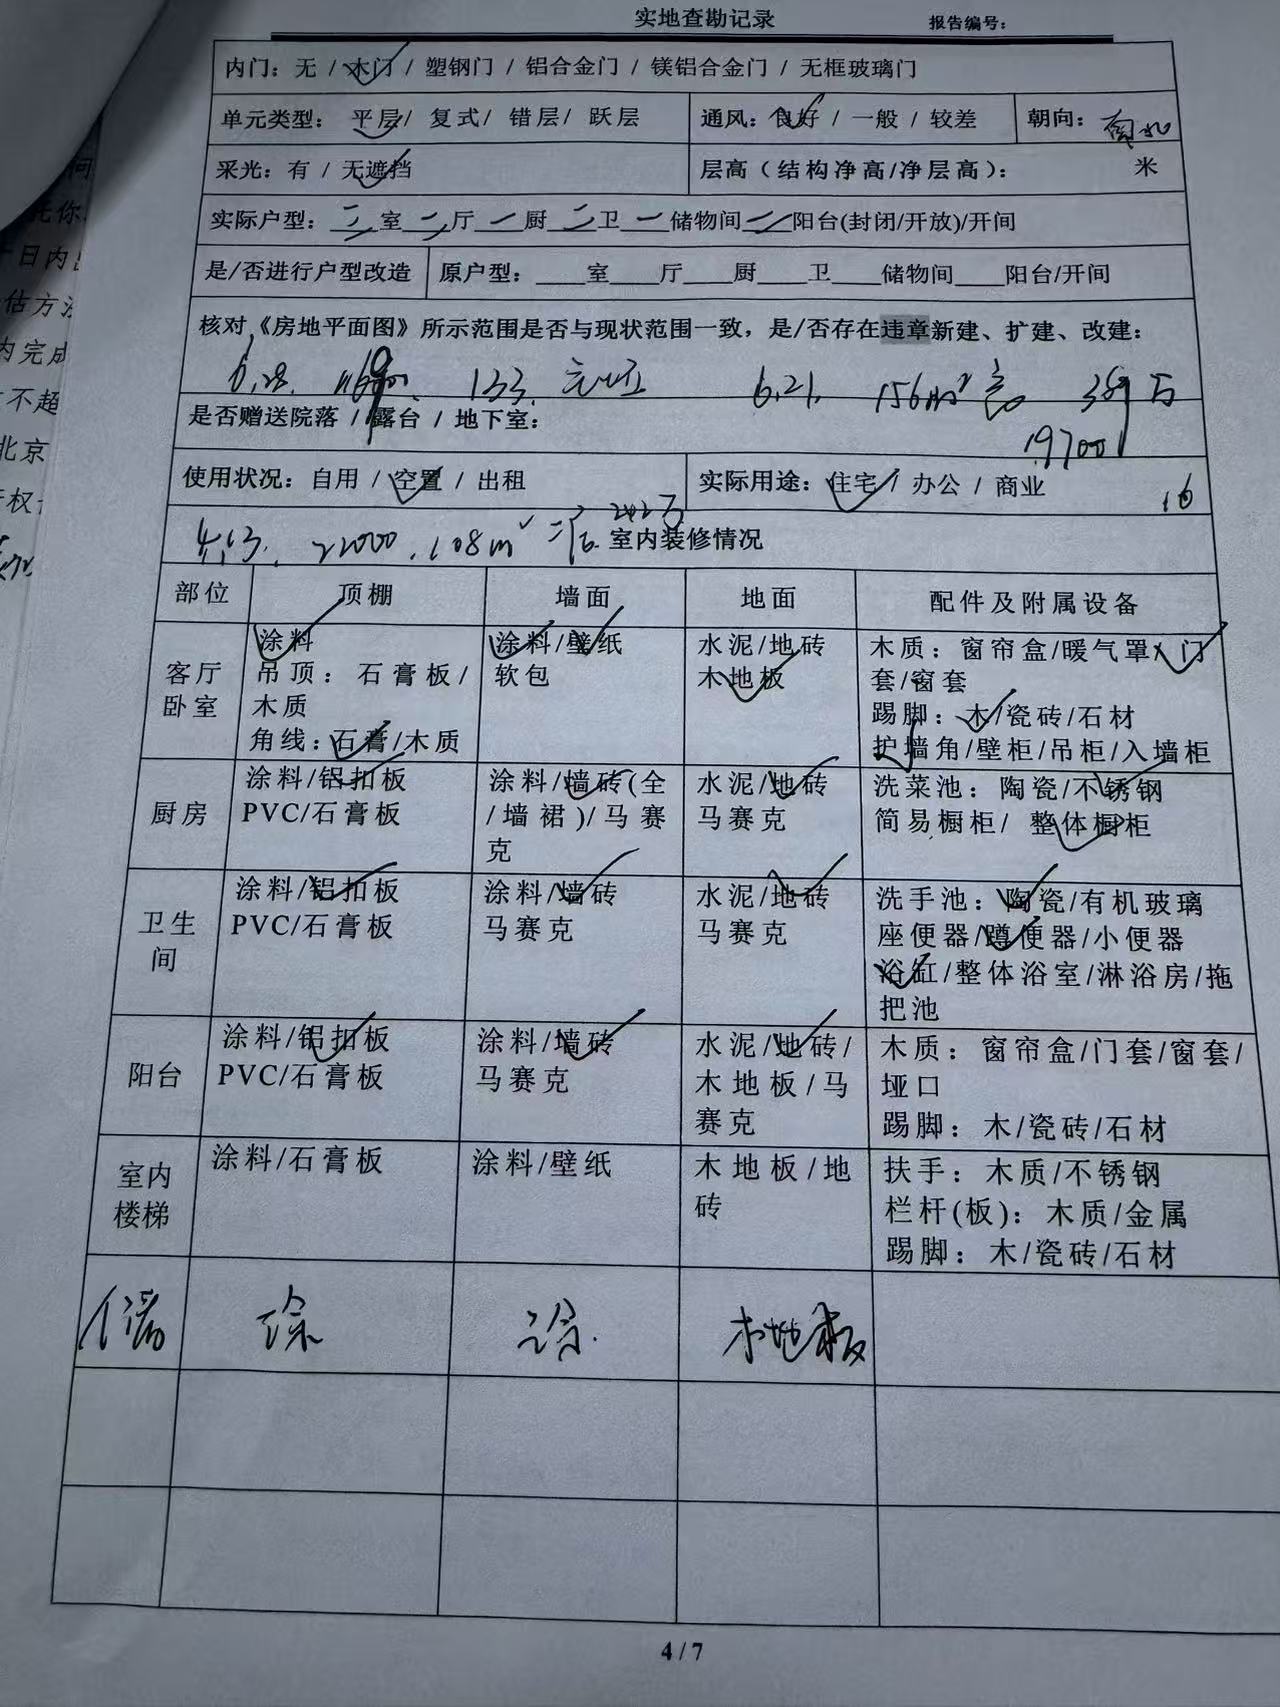 实地查勘记录 报告编号：
内门：无 / 木门 / 塑钢门 / 铝合金门 / 镁铝合金门 / 无框玻璃门
单元类型： 平层/ 复式/ 错层/ 跃层 通风：良好 / 一般 / 较差 朝向：南北
采光：有 / 无遮挡 层高（结构净高/净层高）： 米
实际户型：三室二厅一厨二卫一储物间二阳台(封闭/开放)/开间
是/否进行户型改造 原户型：____室____厅____厨____卫____储物间____阳台/开间
核对《房地平面图》所示范围是否与现状范围一致，是/否存在违章新建、扩建、改建：
6.28. 133. 6.21. 156m² 389万
是否赠送院落 / 露台 / 地下室：
19700
使用状况：自用 / 空置 / 出租 实际用途：住宅 / 办公 / 商业
16
4.13. 22000. 108m² 242万
室内装修情况
部位 顶棚 墙面 地面 配件及附属设备
客厅
卧室
涂料
吊顶：石膏板/
木质
角线：石膏/木质
涂料/壁纸
软包
水泥/地砖
木地板
木质：窗帘盒/暖气罩/门
套/窗套
踢脚：木/瓷砖/石材
护墙角/壁柜/吊柜/入墙柜
厨房
涂料/铝扣板
PVC/石膏板
涂料/墙砖(全
/墙裙)/马赛
克
水泥/地砖
马赛克
洗菜池：陶瓷/不锈钢
简易橱柜/ 整体橱柜
卫生
间
涂料/铝扣板
PVC/石膏板
涂料/墙砖
马赛克
水泥/地砖
马赛克
洗手池：陶瓷/有机玻璃
座便器/蹲便器/小便器
浴缸/整体浴室/淋浴房/拖
把池
阳台
涂料/铝扣板
PVC/石膏板
涂料/墙砖
马赛克
水泥/地砖/
木地板/马
赛克
木质：窗帘盒/门套/窗套/
垭口
踢脚：木/瓷砖/石材
室内
楼梯
涂料/石膏板
涂料/壁纸
木地板/地
砖
扶手：木质/不锈钢
栏杆(板)：木质/金属
踢脚：木/瓷砖/石材
储 涂 涂. 木地板
4 / 7